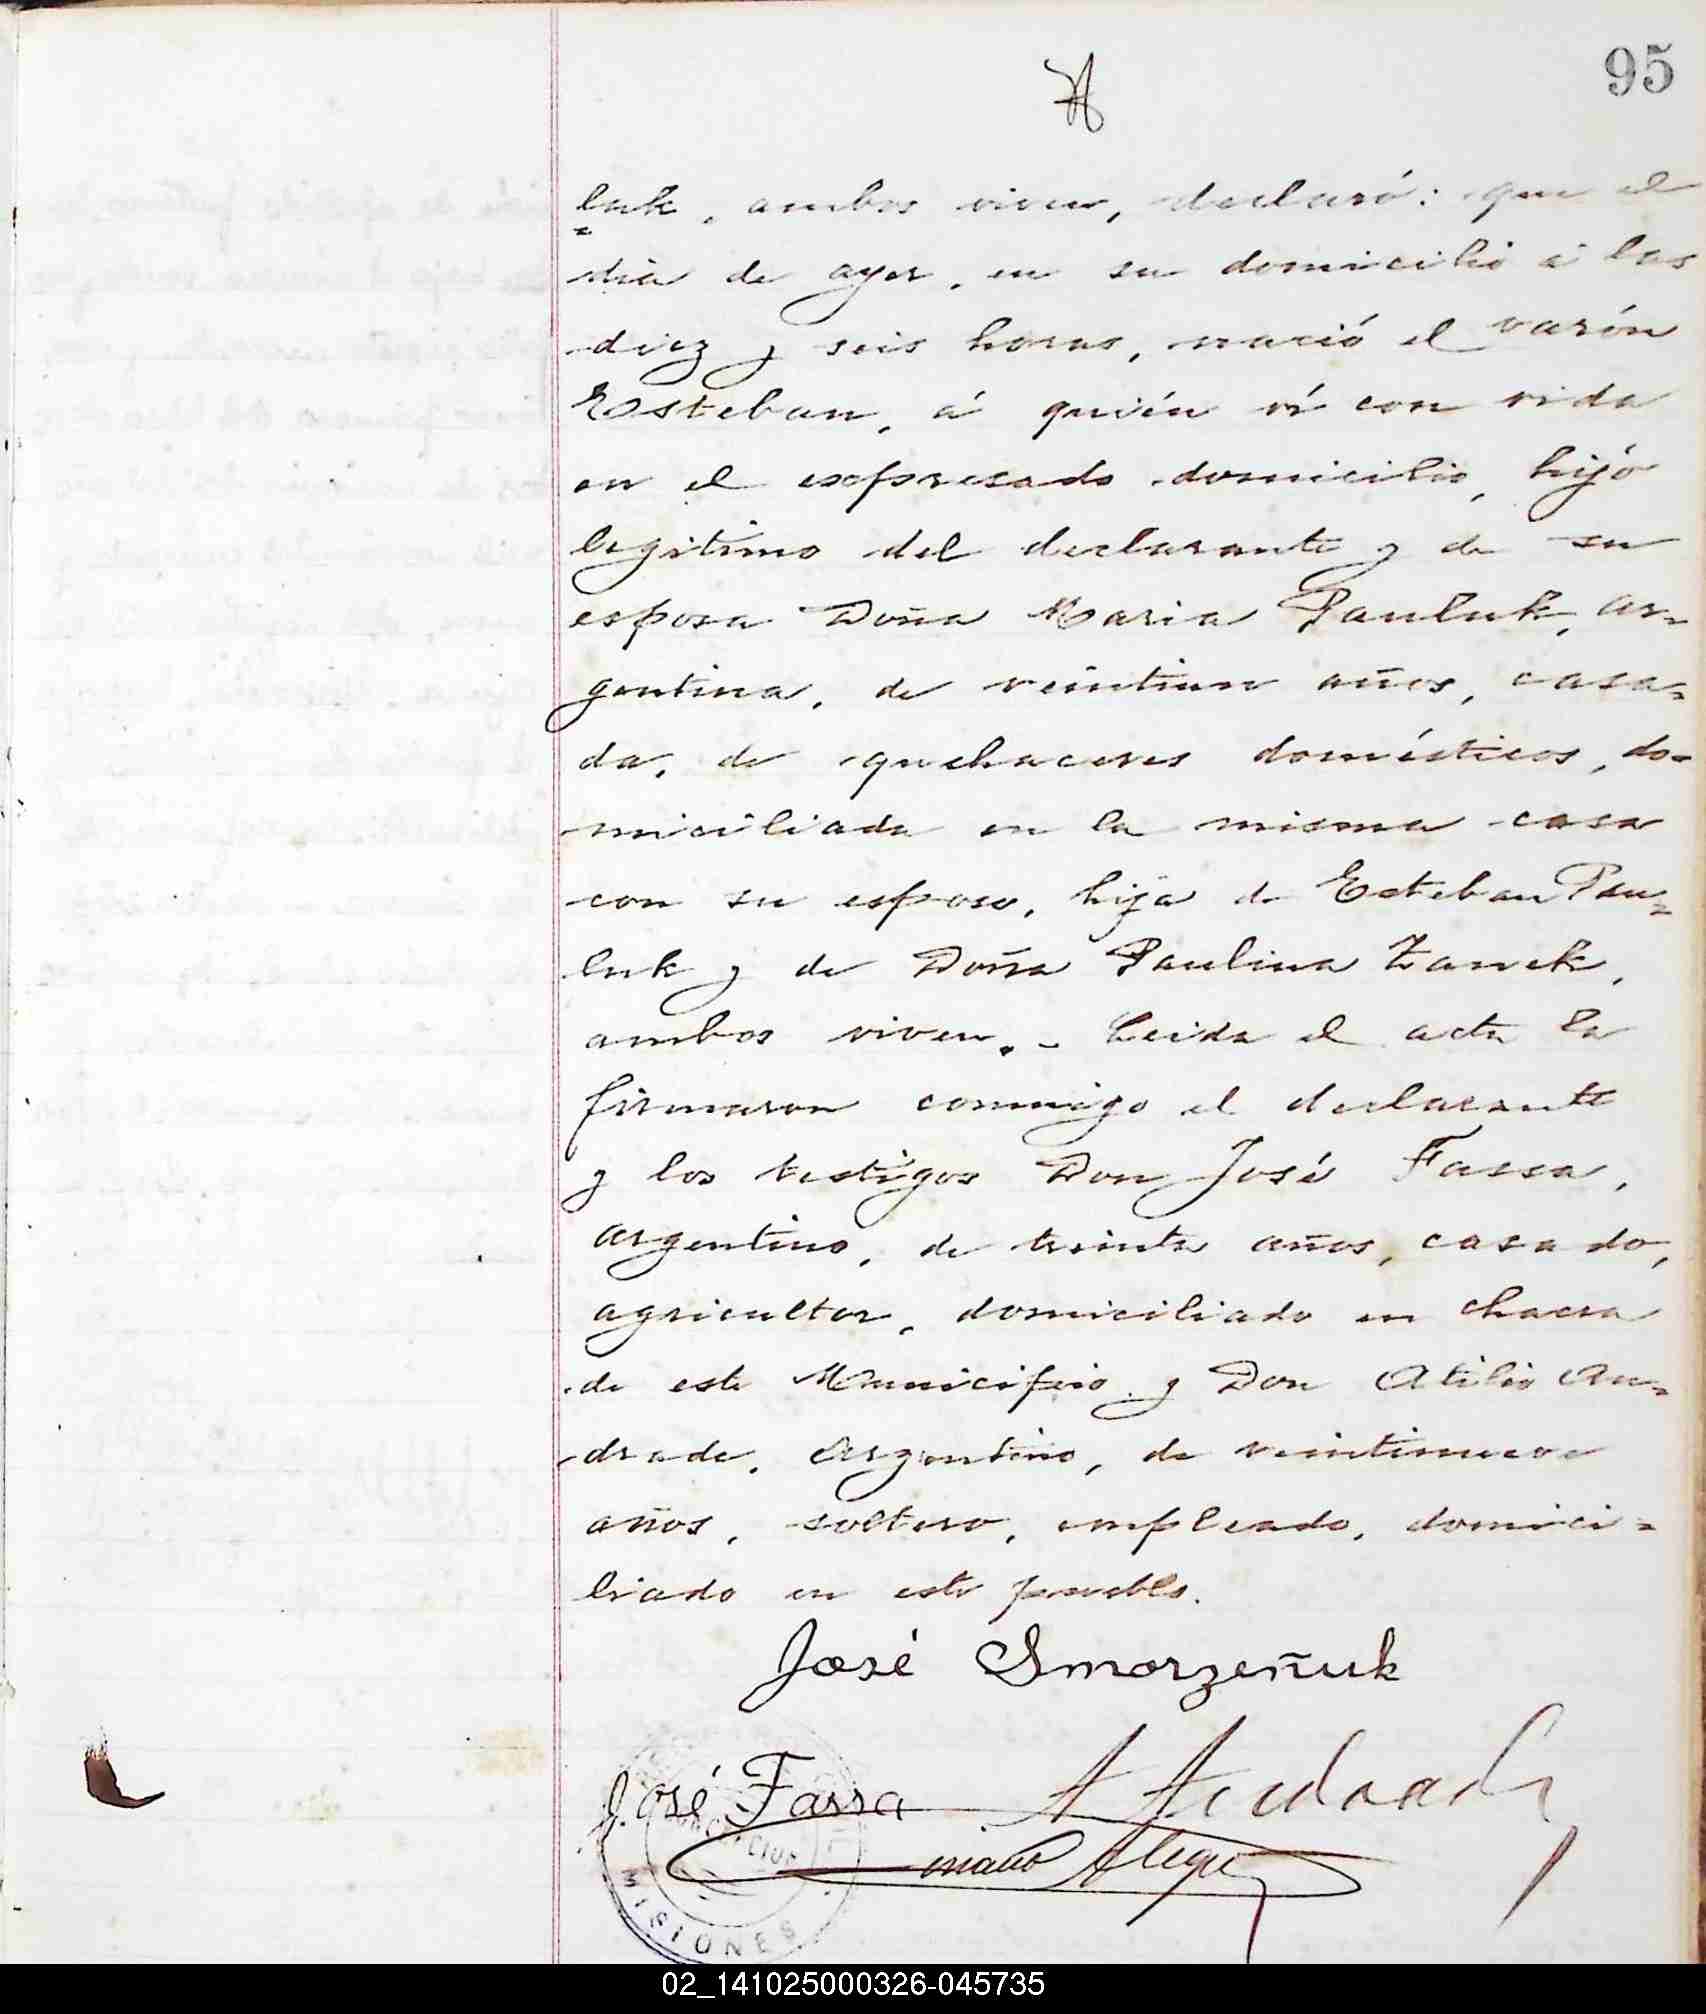 95
luk, ambos viven, declaró: que el
día de ayer, en su domicilio á las
diez y seis horas, nació el varón
Esteban, á quién ví con vida
en el expresado domicilio, hijo
legítimo del declarante y de su
esposa Doña Maria Pauluk, ar=
gentina, de veintiun años, casa=
da, de quehaceres domésticos, do=
miciliada en la misma casa
con su esposo, hija de Esteban Pau=
luk y de Doña Paulina Zanek,
ambos viven.- Leida el acta la
firmaron conmigo el declarante
y los testigos Don José Fassa,
argentino, de treinta años, casado,
agricultor, domiciliado en chacra
de este Municipio y Don Atilio An=
drade, argentino, de veintinueve
años, soltero, empleado, domici=
liado en este pueblo.
José Smorzeñuk
José Fassa A Andrade
Alegre
MISIONES
02_141025000326-045735